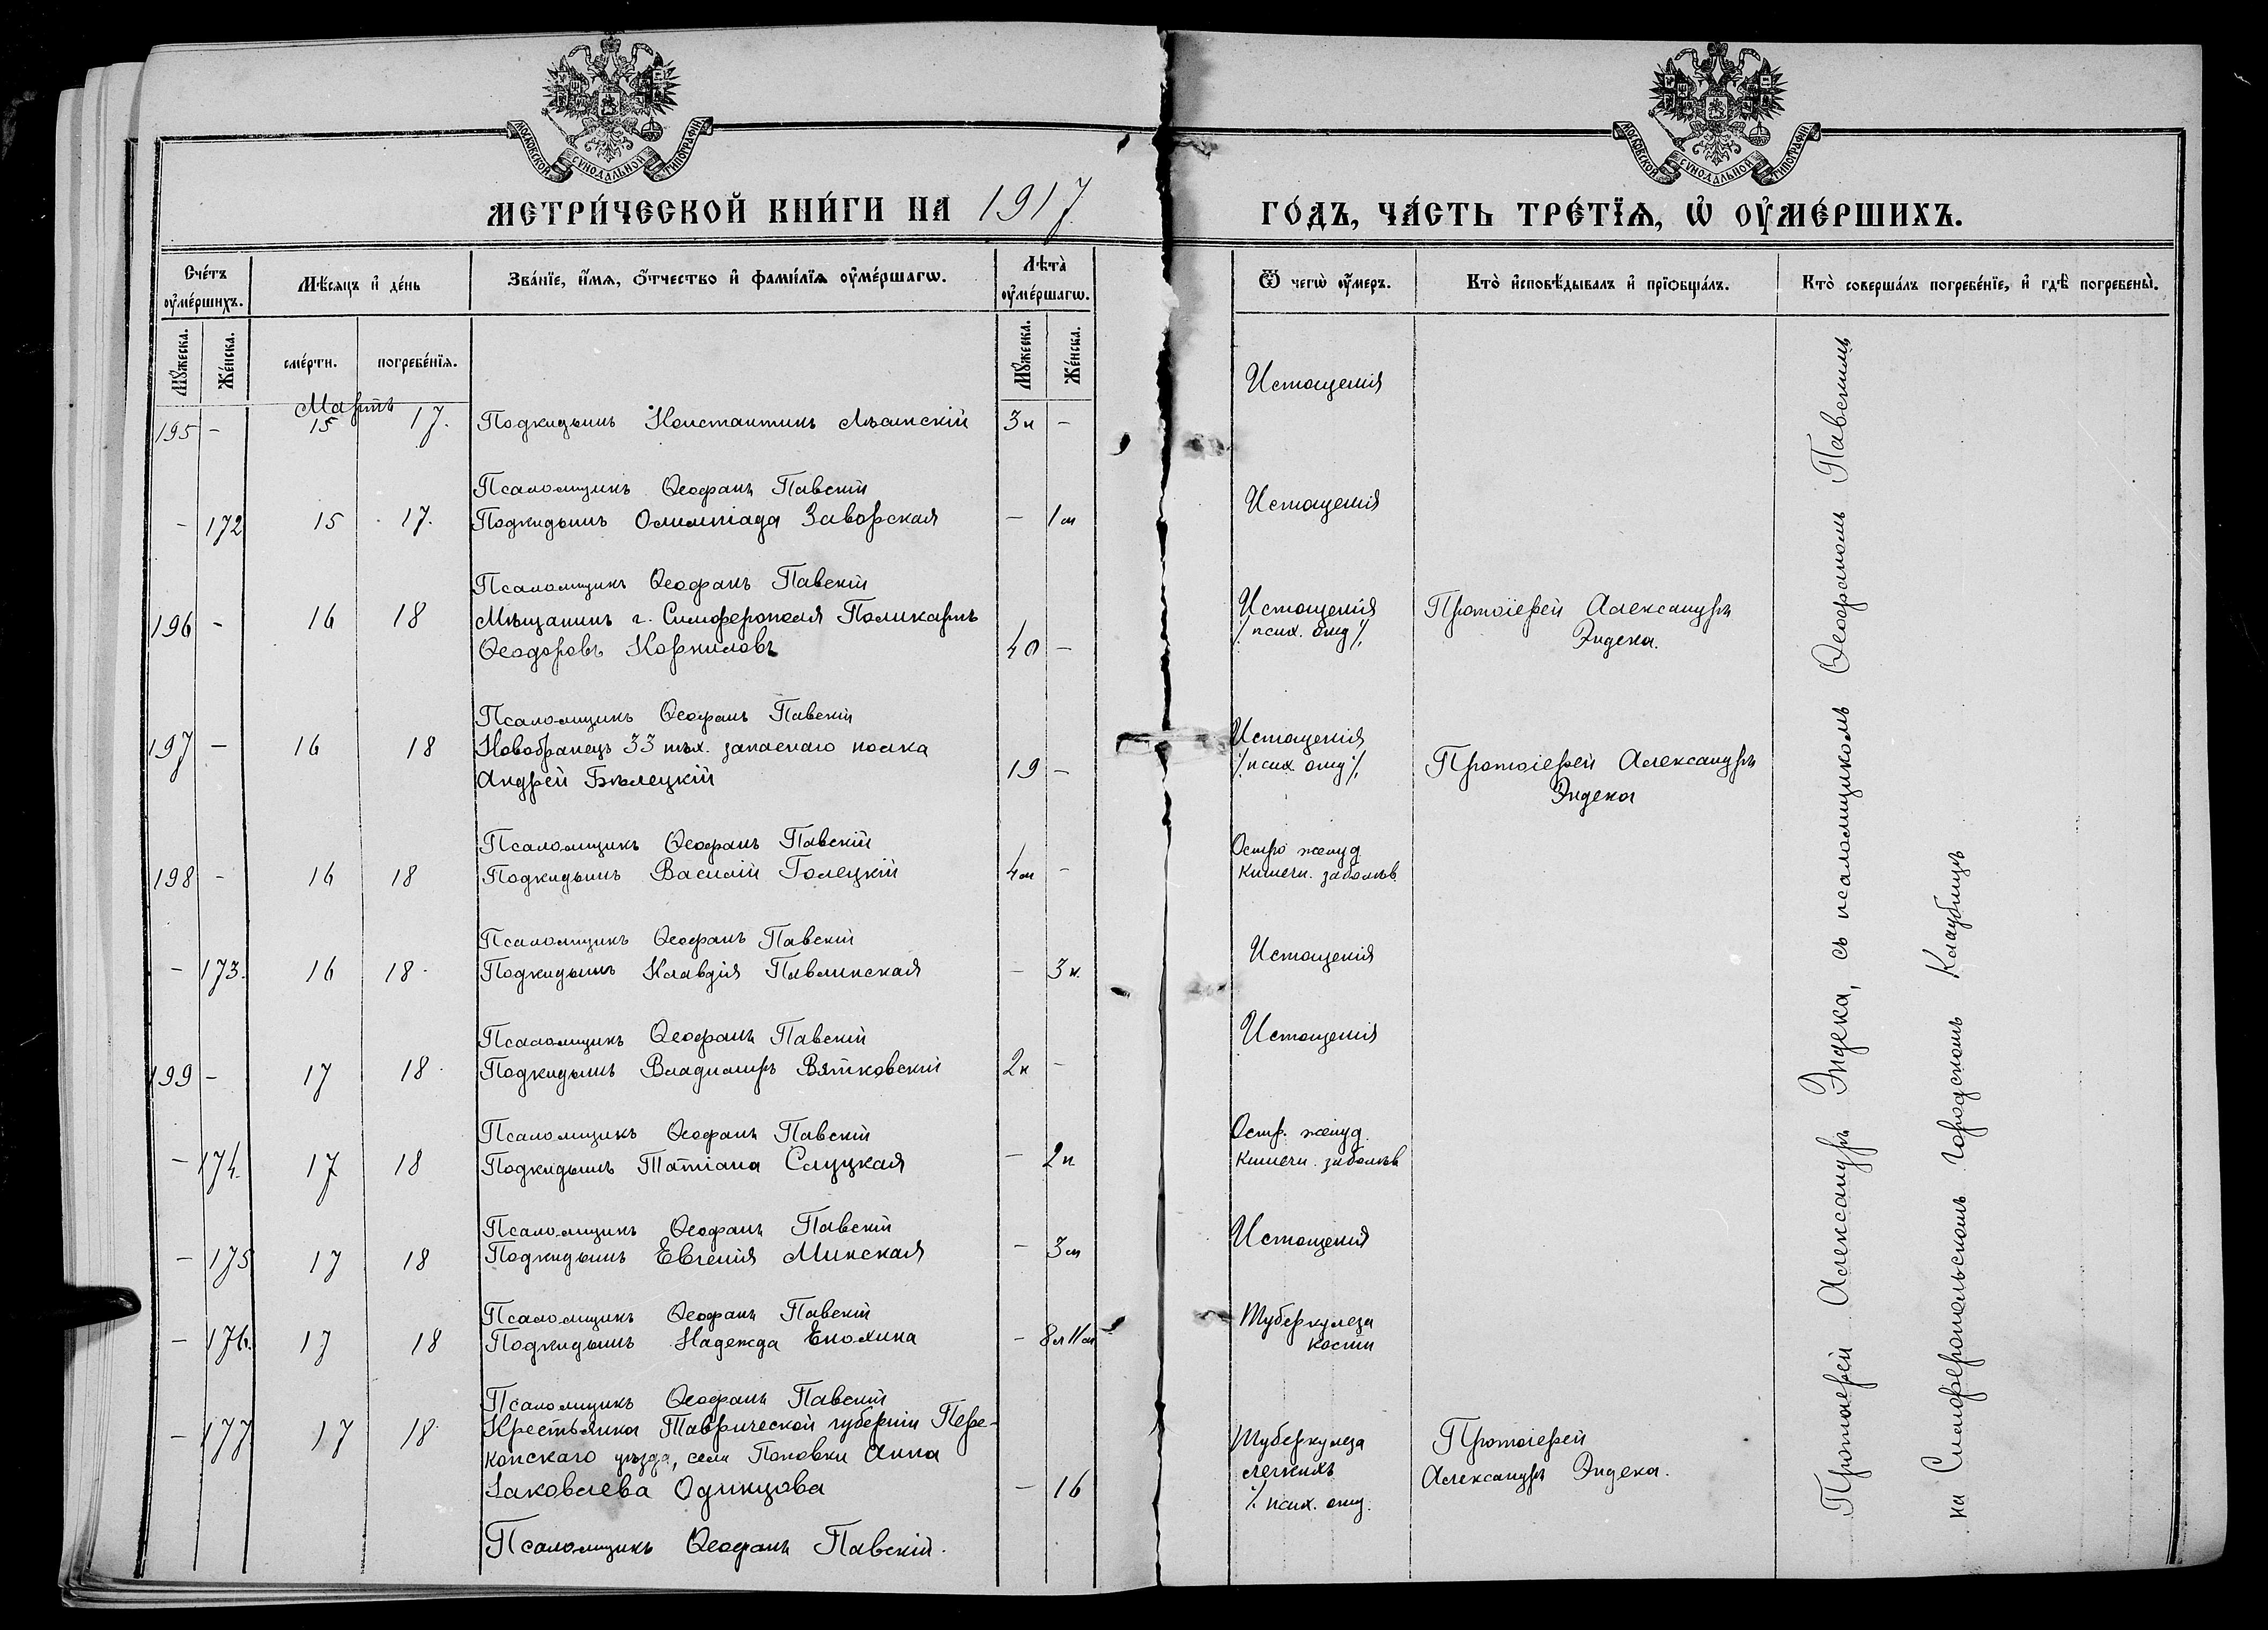 МОСКОВСКОЙ СѴНОДАЛЬНОЙ ТИПОГРАФІИ.
МОСКОВСКОЙ СѴНОДАЛЬНОЙ ТИПОГРАФІИ.
МЕТРИ́ЧЕСКОЙ КНИ́ГИ НА 1917
ГО́ДЪ, ЧА́СТЬ ТРЕ́ТЇѦ, Ѡ҆ ОУ҆МЕ́РШИХЪ.
Сче́тъ оу҆ме́ршихъ.
Мѣ́сяцъ и҆ де́нь
Зва́нїе, и҆́мѧ, ѻ҆́тчество и҆ фами́лїѧ оу҆ме́ршагѡ.
Лѣ̑та̀ оу҆ме́ршагѡ.
Ѿ чегѡ̀ оу҆́меръ.
Кто̀ и҆сповѣ́дывалъ и҆ прїѡбща́лъ.
Кто̀ соверша́лъ погребе́нїе, и҆ гдѣ̀ погребены̀.
Мꙋ́жеска.
Же́нска.
сме́рти.
погребе́нїѧ.
Мꙋ́жеска.
Же́нска.
Мартъ
Истощенія
195 - 15 17. Подкидышъ Константинъ Лѣсинскій 3н -
Псаломщикъ Ѳеофанъ Павскій
Истощенія
- 172 15 17. Подкидышъ Олимпіада Заворская - 1м
Псаломщикъ Ѳеофанъ Павскій
196 - 16 18 Мѣщанинъ г. Симферополя Поликарпъ
Ѳеодоровъ Корниловъ 40 -
Истощенія
/. псих. отд /.
Протоіерей Александръ
Эндека.
Псаломщикъ Ѳеофанъ Павскій
197 - 16 18 Новобранецъ 33 пѣх. запаснаго полка
Андрей Бѣлецкій 19 -
Истощенія
/. псих отд /.
Протоіерей Александръ
Эндека
Псаломщикъ Ѳеофанъ Павскій
198 - 16 18 Подкидышъ Василій Голецкій 4м -
Остро желуд
кишечн. заболѣв.
Псаломщикъ Ѳеофанъ Павскій
- 173. 16 18. Подкидышъ Клавдія Павлинская - 3н.
Истощенія
Псаломщикъ Ѳеофанъ Павскій
199 - 17 18. Подкидышъ Владимиръ Вятковскій 2н -
Истощенія
Псаломщикъ Ѳеофанъ Павскій
- 174. 17 18 Подкидышъ Татіана Слуцкая - 2н
Остр. желуд.
кишечн. заболѣв
Псаломщикъ Ѳеофанъ Павскій
- 175 17 18 Подкидышъ Евгенія Минская - 3м
Истощенія
Псаломщикъ Ѳеофанъ Павскій
- 176. 17 18 Подкидышъ Надежда - 8л 11м
Туберкулеза
кости
Псаломщикъ Ѳеофанъ Павскій
- 177 17 18. Крестьянка Таврической губерніи Пере-
копскаго уѣзда, села Поповки Анна
Іаковлева Одинцова - 16
Туберкулеза
легкихъ
/. псих. отд.
Протоіерей
Александръ Эндека.
Псаломщикъ Ѳеофанъ Павскій.
Протоіерей Александръ Эндека, съ псаломщикомъ Ѳеофаномъ Павскимъ
на Симферопольскомъ городскомъ